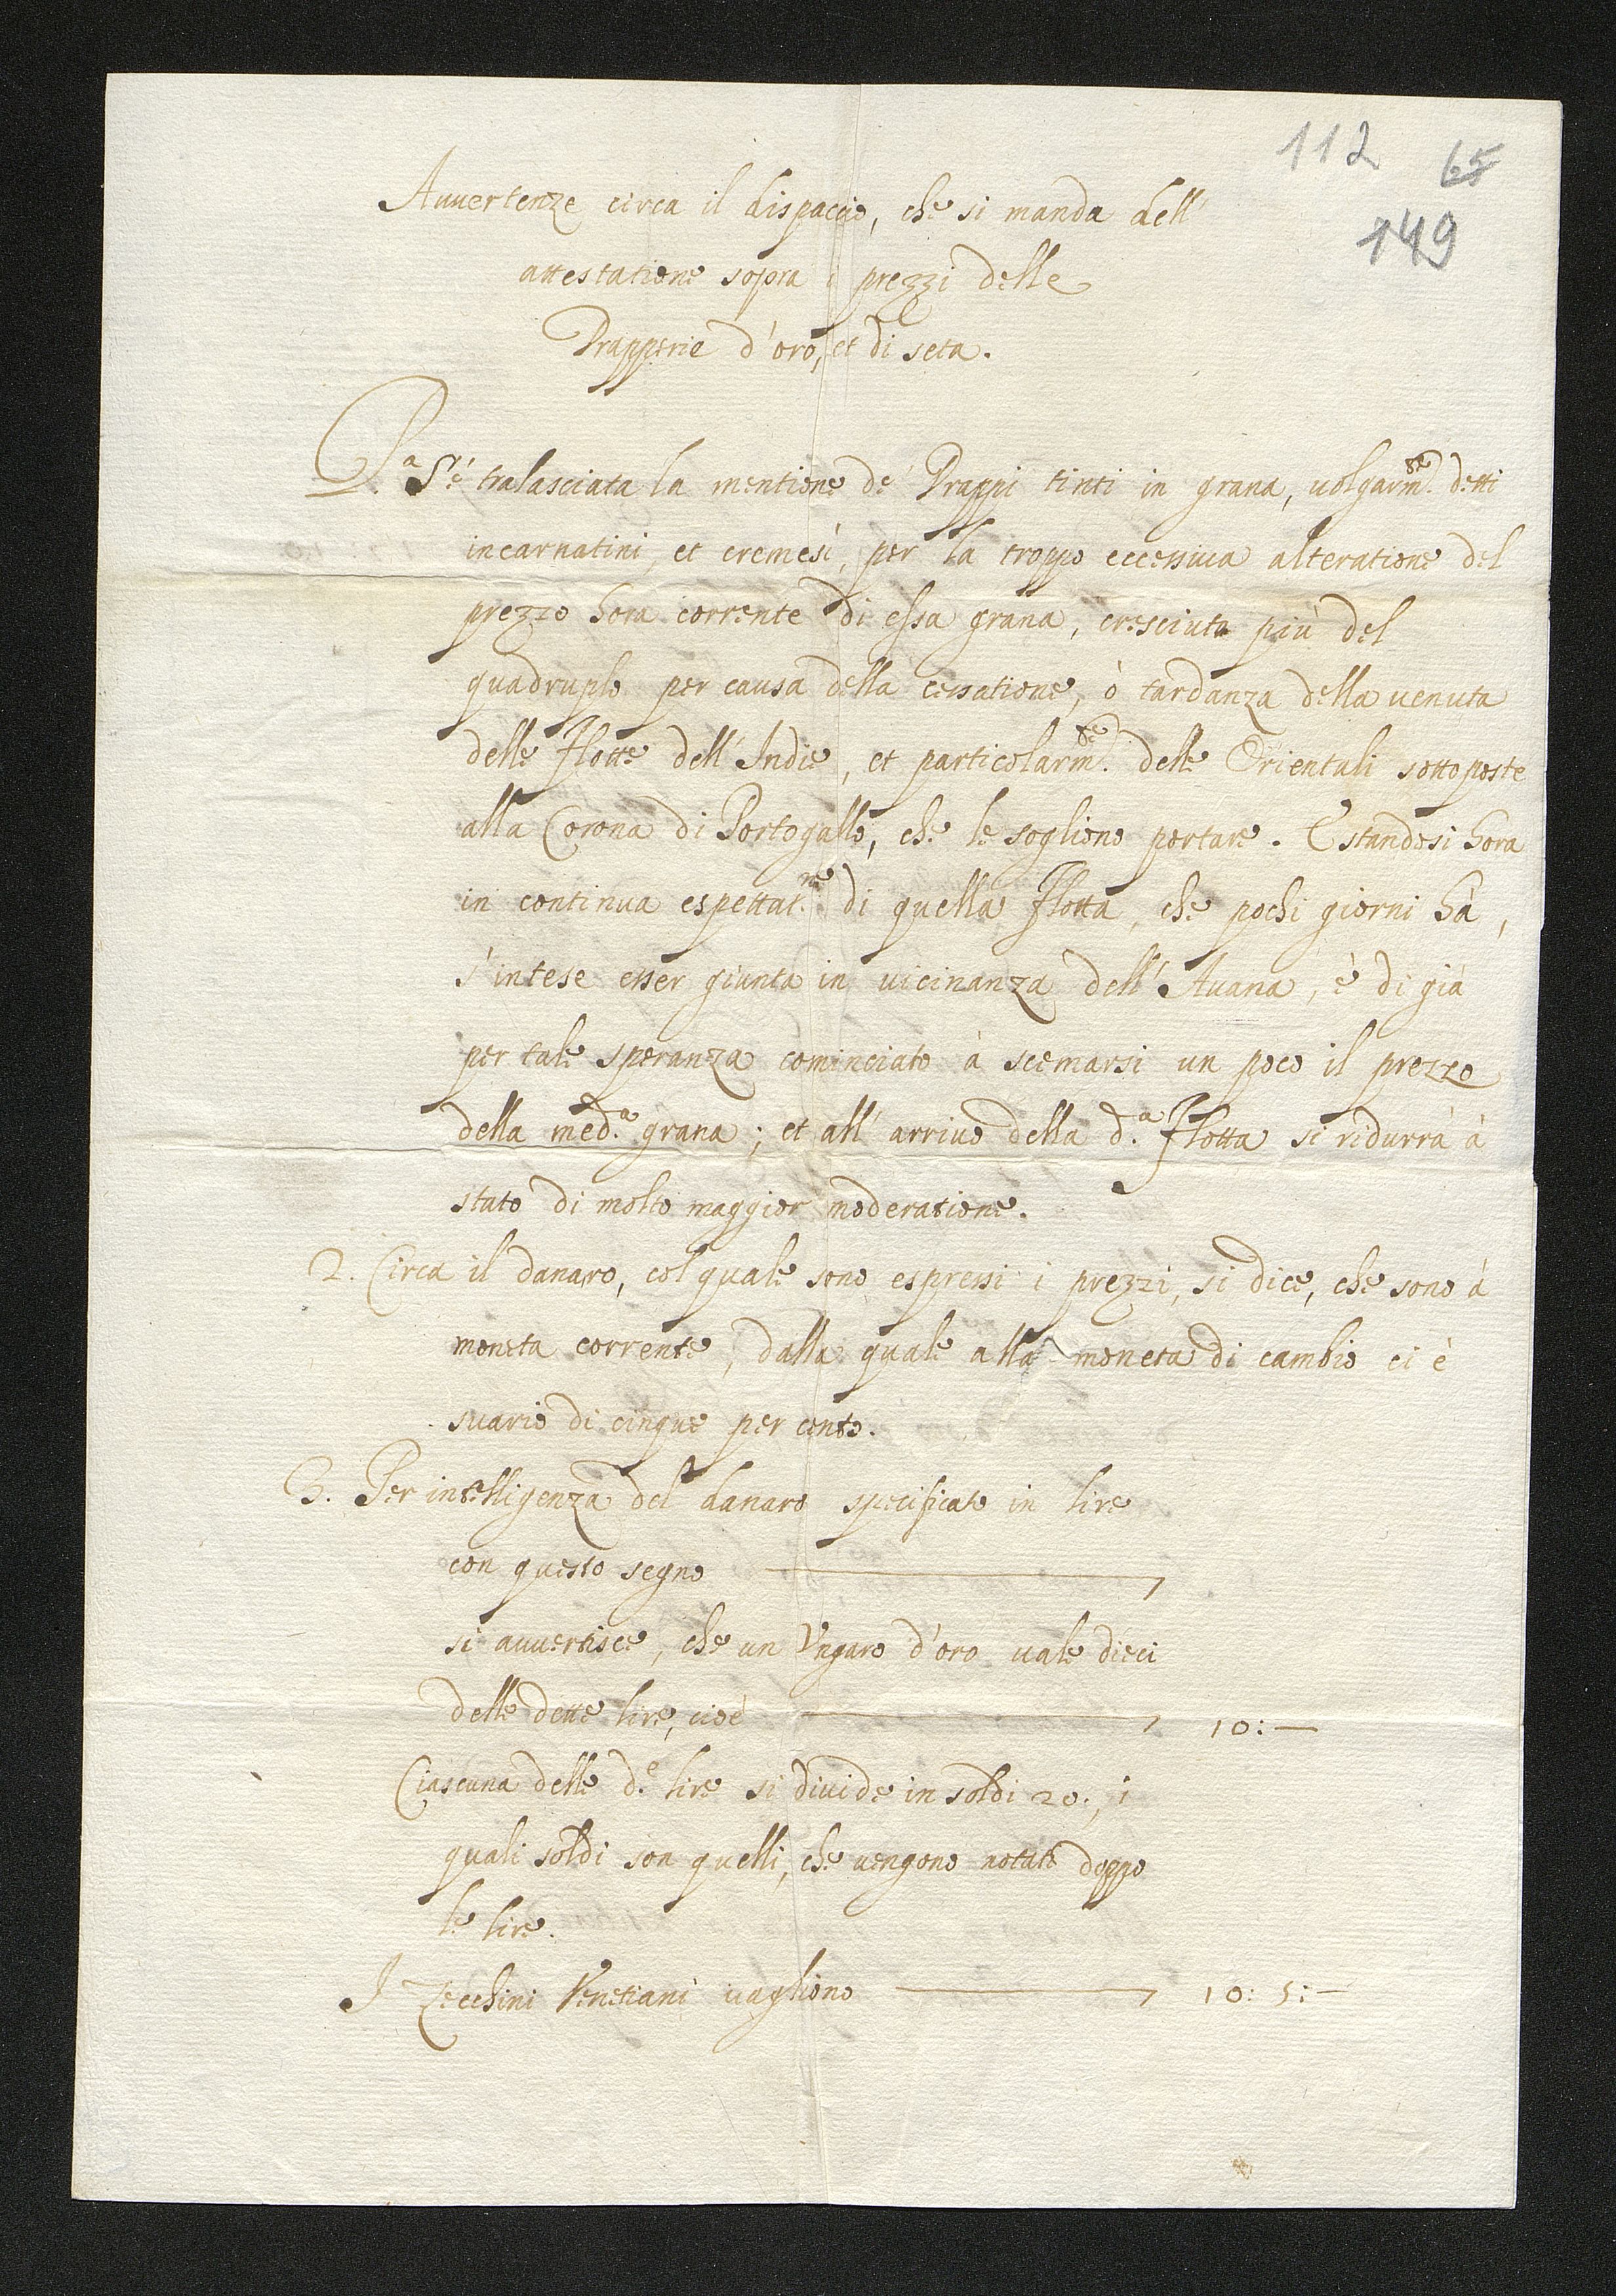 112 65
149
Auuertenze circa il dispaccio, che si manda dell'
attestatione sopra i prezzi delle
Drapperie d'oro, et di seta.
P.a S'è tralasciata la mentione de' Drappi tinti in grana, uolgarm.te detti
incarnatini, et cremesì, per la troppo eccessiua alteratione del
prezzo hora corrente di essa grana, cresciuta più del
quadruplo per causa della cessatione, ò tardanza della uenuta
delle Flotte dell'Indie, et particolarm.te delle Orientali sottoposte
alla Corona di Portogallo, che le sogliono portare. Estandosi hora
in continua espettat.ne di quella Flotta, che pochi giorni hà,
s'intese esser giunta in uicinanza dell'Auana, è di già
per tale speranza cominciato à scemarsi un poco il prezzo
della med.a grana; et all'arriuo della d.a Flotta si ridurrà à
stato di molto maggior moderatione.
2. Circa il danaro, col quale sono espressi i prezzi, si dice, che sono à
moneta corrente, dalla quale alla moneta di cambio ci è
suario di cinque per cento.
3. Per intelligenza del danaro specificato in lire
con questo segno
si auuertisce, che un Vngaro d'oro uale dieci
delle dette lire, cioè 10:—
Ciascuna delle d.e lire si diuide in soldi 20., i
quali soldi son quelli, che uengono notati doppo
le lire.
I Zecchini Venetiani uagliono 10: 5:—